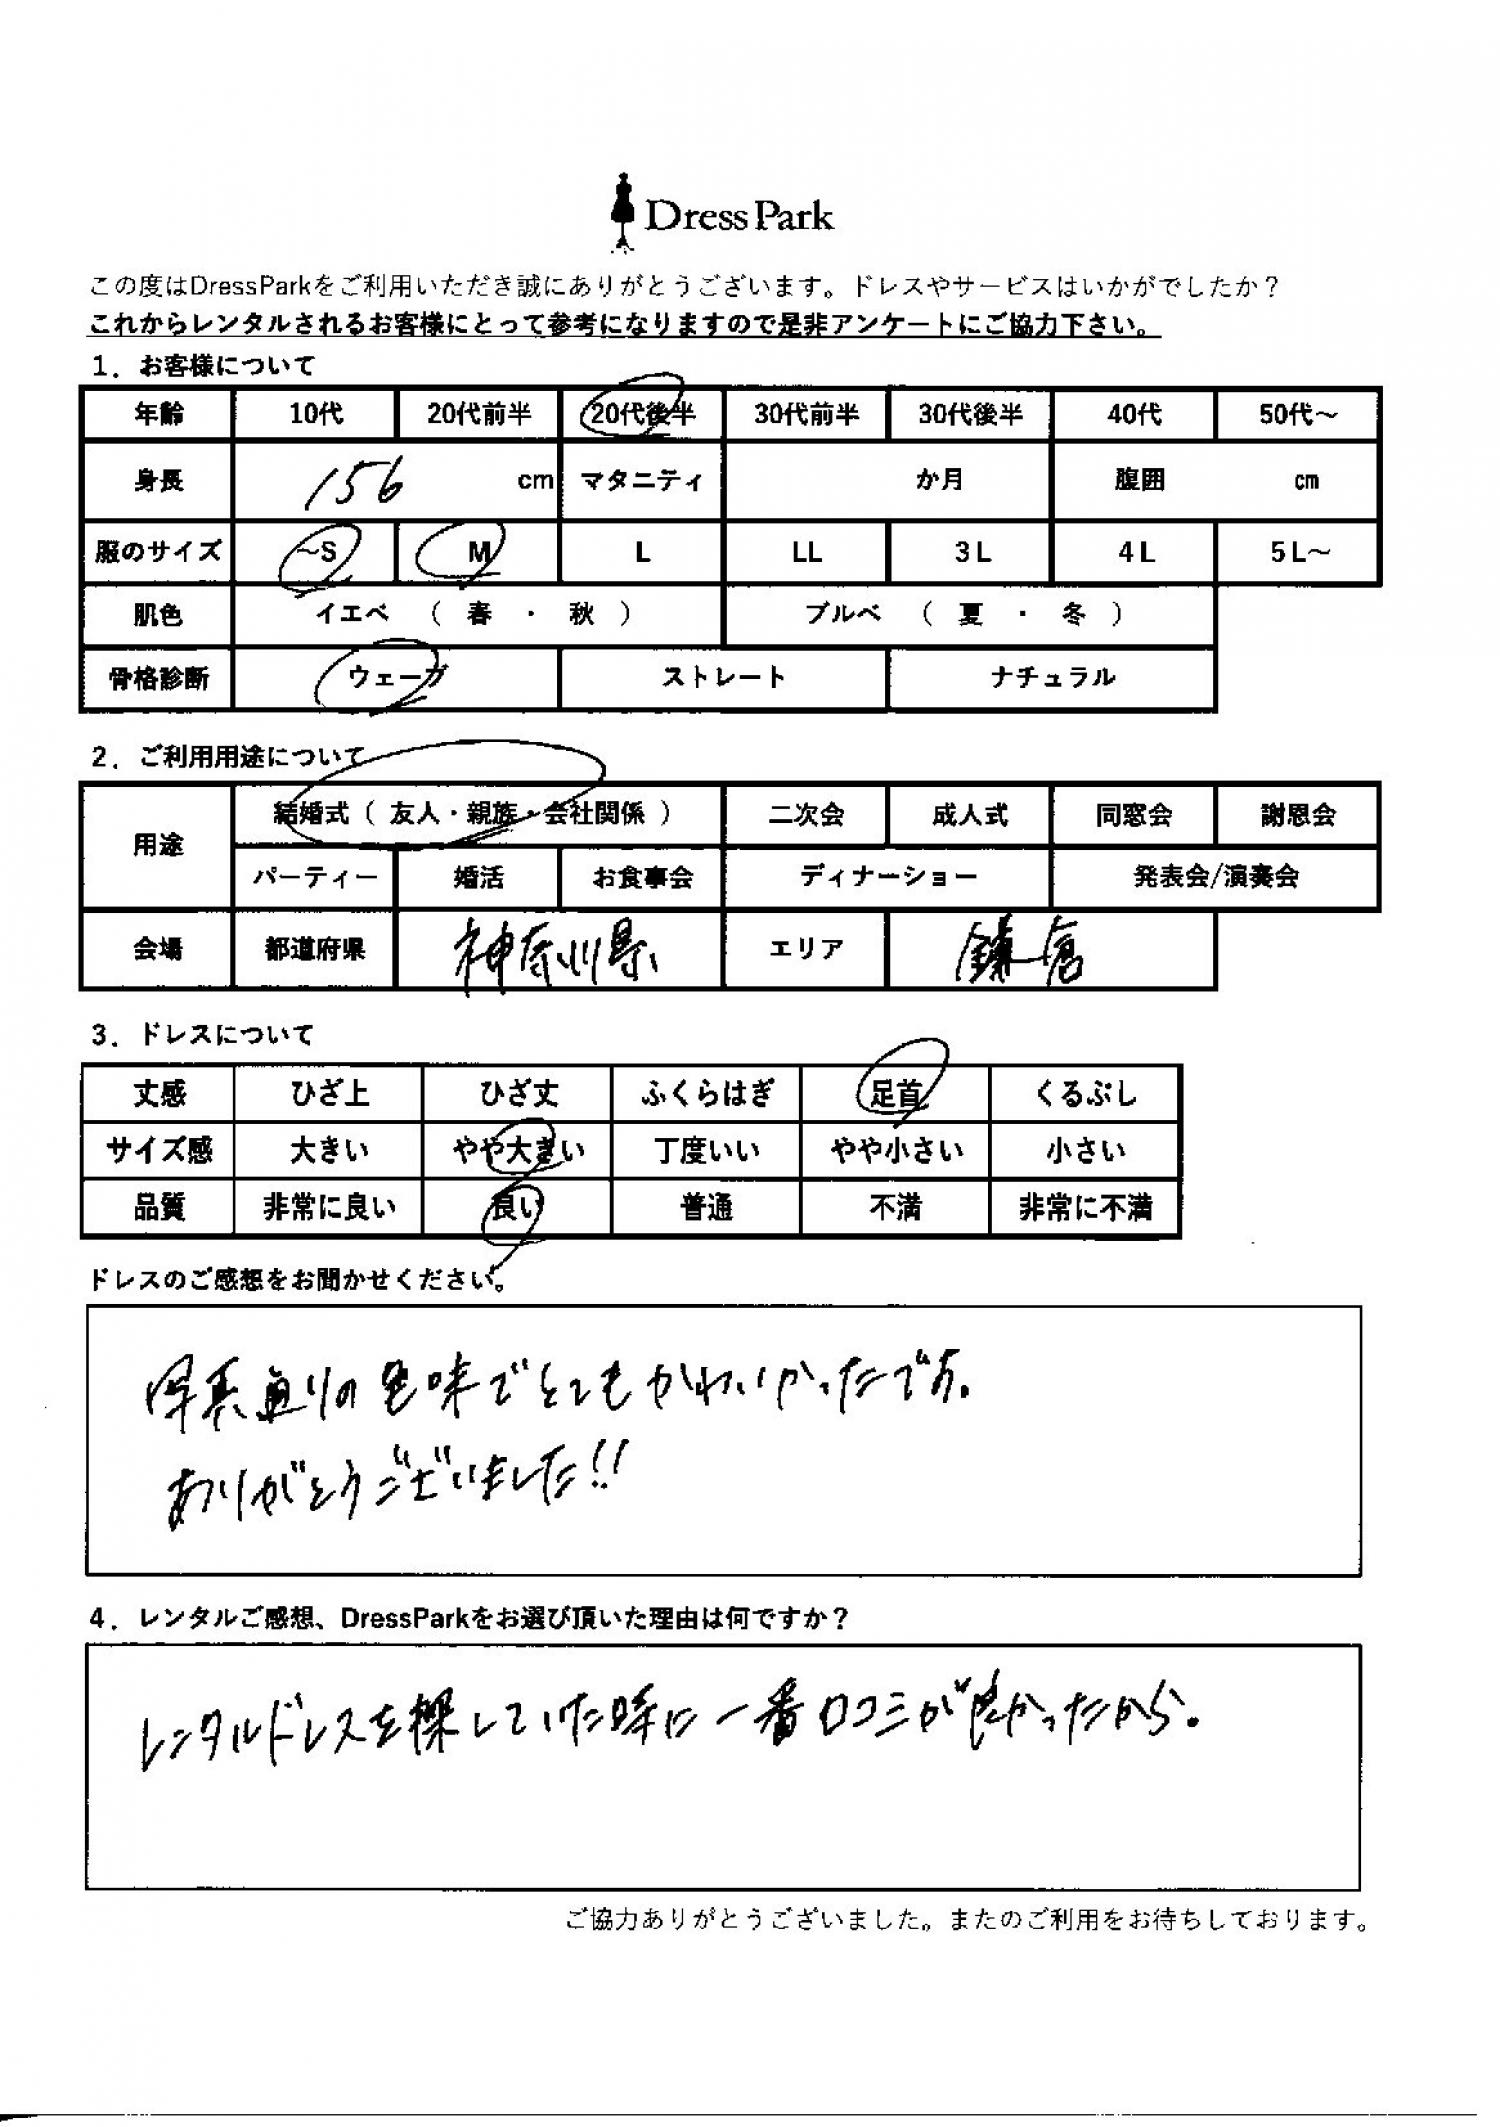 Dress Park
この度はDressParkをご利用いただき誠にありがとうございます。ドレスやサービスはいかがでしたか？
これからレンタルされるお客様にとって参考になりますので是非アンケートにご協力下さい。
1．お客様について
年齢 10代 20代前半 20代後半 30代前半 30代後半 40代 50代～
身長 156 cm マタニティ か月 腹囲 cm
服のサイズ ～S M L LL 3L 4L 5L～
肌色 イエベ （ 春 ・ 秋 ） ブルベ （ 夏 ・ 冬 ）
骨格診断 ウェーブ ストレート ナチュラル
2．ご利用用途について
用途 結婚式（ 友人・親族・会社関係 ） 二次会 成人式 同窓会 謝恩会
パーティー 婚活 お食事会 ディナーショー 発表会/演奏会
会場 都道府県 神奈川県 エリア 鎌倉
3．ドレスについて
丈感 ひざ上 ひざ丈 ふくらはぎ 足首 くるぶし
サイズ感 大きい やや大きい 丁度いい やや小さい 小さい
品質 非常に良い 良い 普通 不満 非常に不満
ドレスのご感想をお聞かせください。
写真通りの色味でとてもかわいかったです。
ありがとうございました!!
4．レンタルご感想、DressParkをお選び頂いた理由は何ですか？
レンタルドレスを探していた時に一番口コミが良かったから。
ご協力ありがとうございました。またのご利用をお待ちしております。